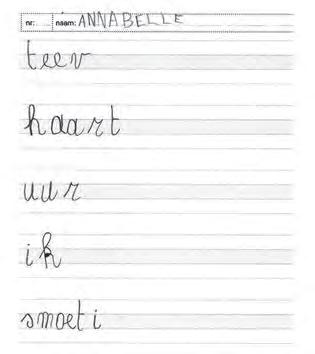 nr: naam: ANNABELLE
teev
haart
uur
ik
smoeti